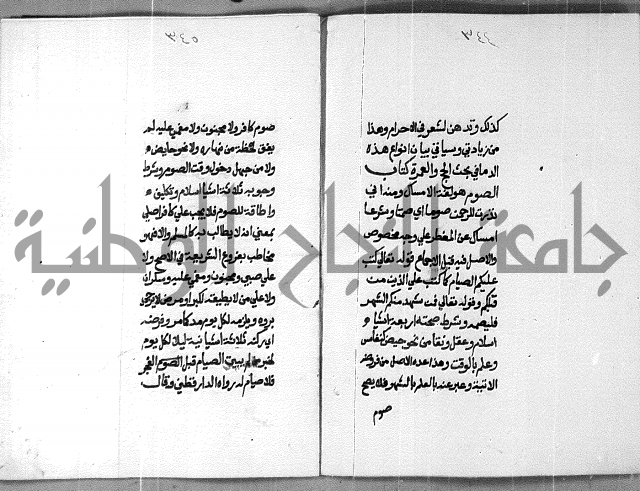 ٣٤٤
كذلك وتدهن لشعر في الاحرام وهذا
من زيادتي وسياتي بيان انواع هذه
الدما في بحث الحج والعمرة كتاب
الصوم هو لغة الامساك ومنه اني
نذرت للرحمن صوما اي صمتا وشرعا
امساك عن المفطر على وجه مخصوص
والاصل فيه قبل الاجماع قوله تعالى كتب
عليكم الصيام كما كتب على الذين من
قبلكم وقوله تعالى فمن شهد منكم الشهر
فليصمه وشرط صحته اربعة اشيا
اسلام وعقل ونقا من نحو حيض كنفاس
وعلم بالوقت وهذا عده الاصل من فروضه
الاتية وعبر عنه بالعلم بالشهر فلا يصح
صوم
٣٤٥
صوم كافر ولا مجنون ولا مغمى عليه لم
يفق لحظة من نهاره ولا نحو حايض
ولا من جهل دخول وقت الصوم وشرط
وجوبه ثلاثة اشيا اسلام وتكليف
واطاقة للصوم فلا يجب على كافر اصلي
بمعنى انه لا يطالب به كالصلاة والا فهو
مخاطب بفروع الشريعة في الاصح ولا
على صبي ومجنون ومغمى عليه وسكران
ولا على من لا يطيقه لكبر او مرض لا يرجى
بروه ويلزمه لكل يوم مد كما مر وفرضه
اي ركنه ثلاثة اشيا نية ليلا لكل يوم
لخبر من لم يبيت الصيام قبل الفجر
فلا صيام له رواه الدار قطني وقال
جامعة النجاح الوطنية